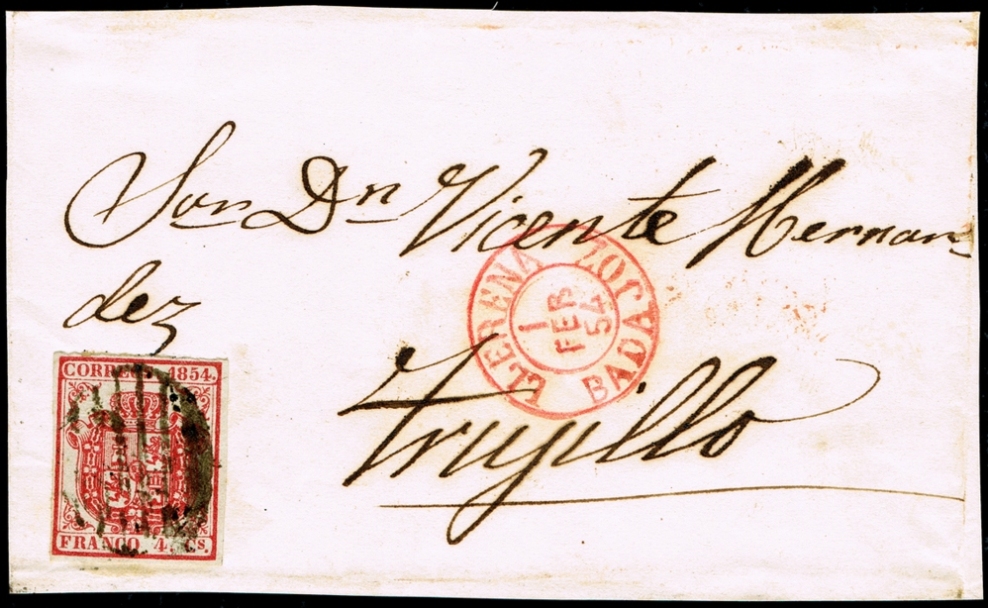 Sor Dn Vicente Hernan
dez
Trujillo
LLERENA
1
FEB
54
BADAJOZ
CORREOS 1854.
FRANCO 4 Cs.